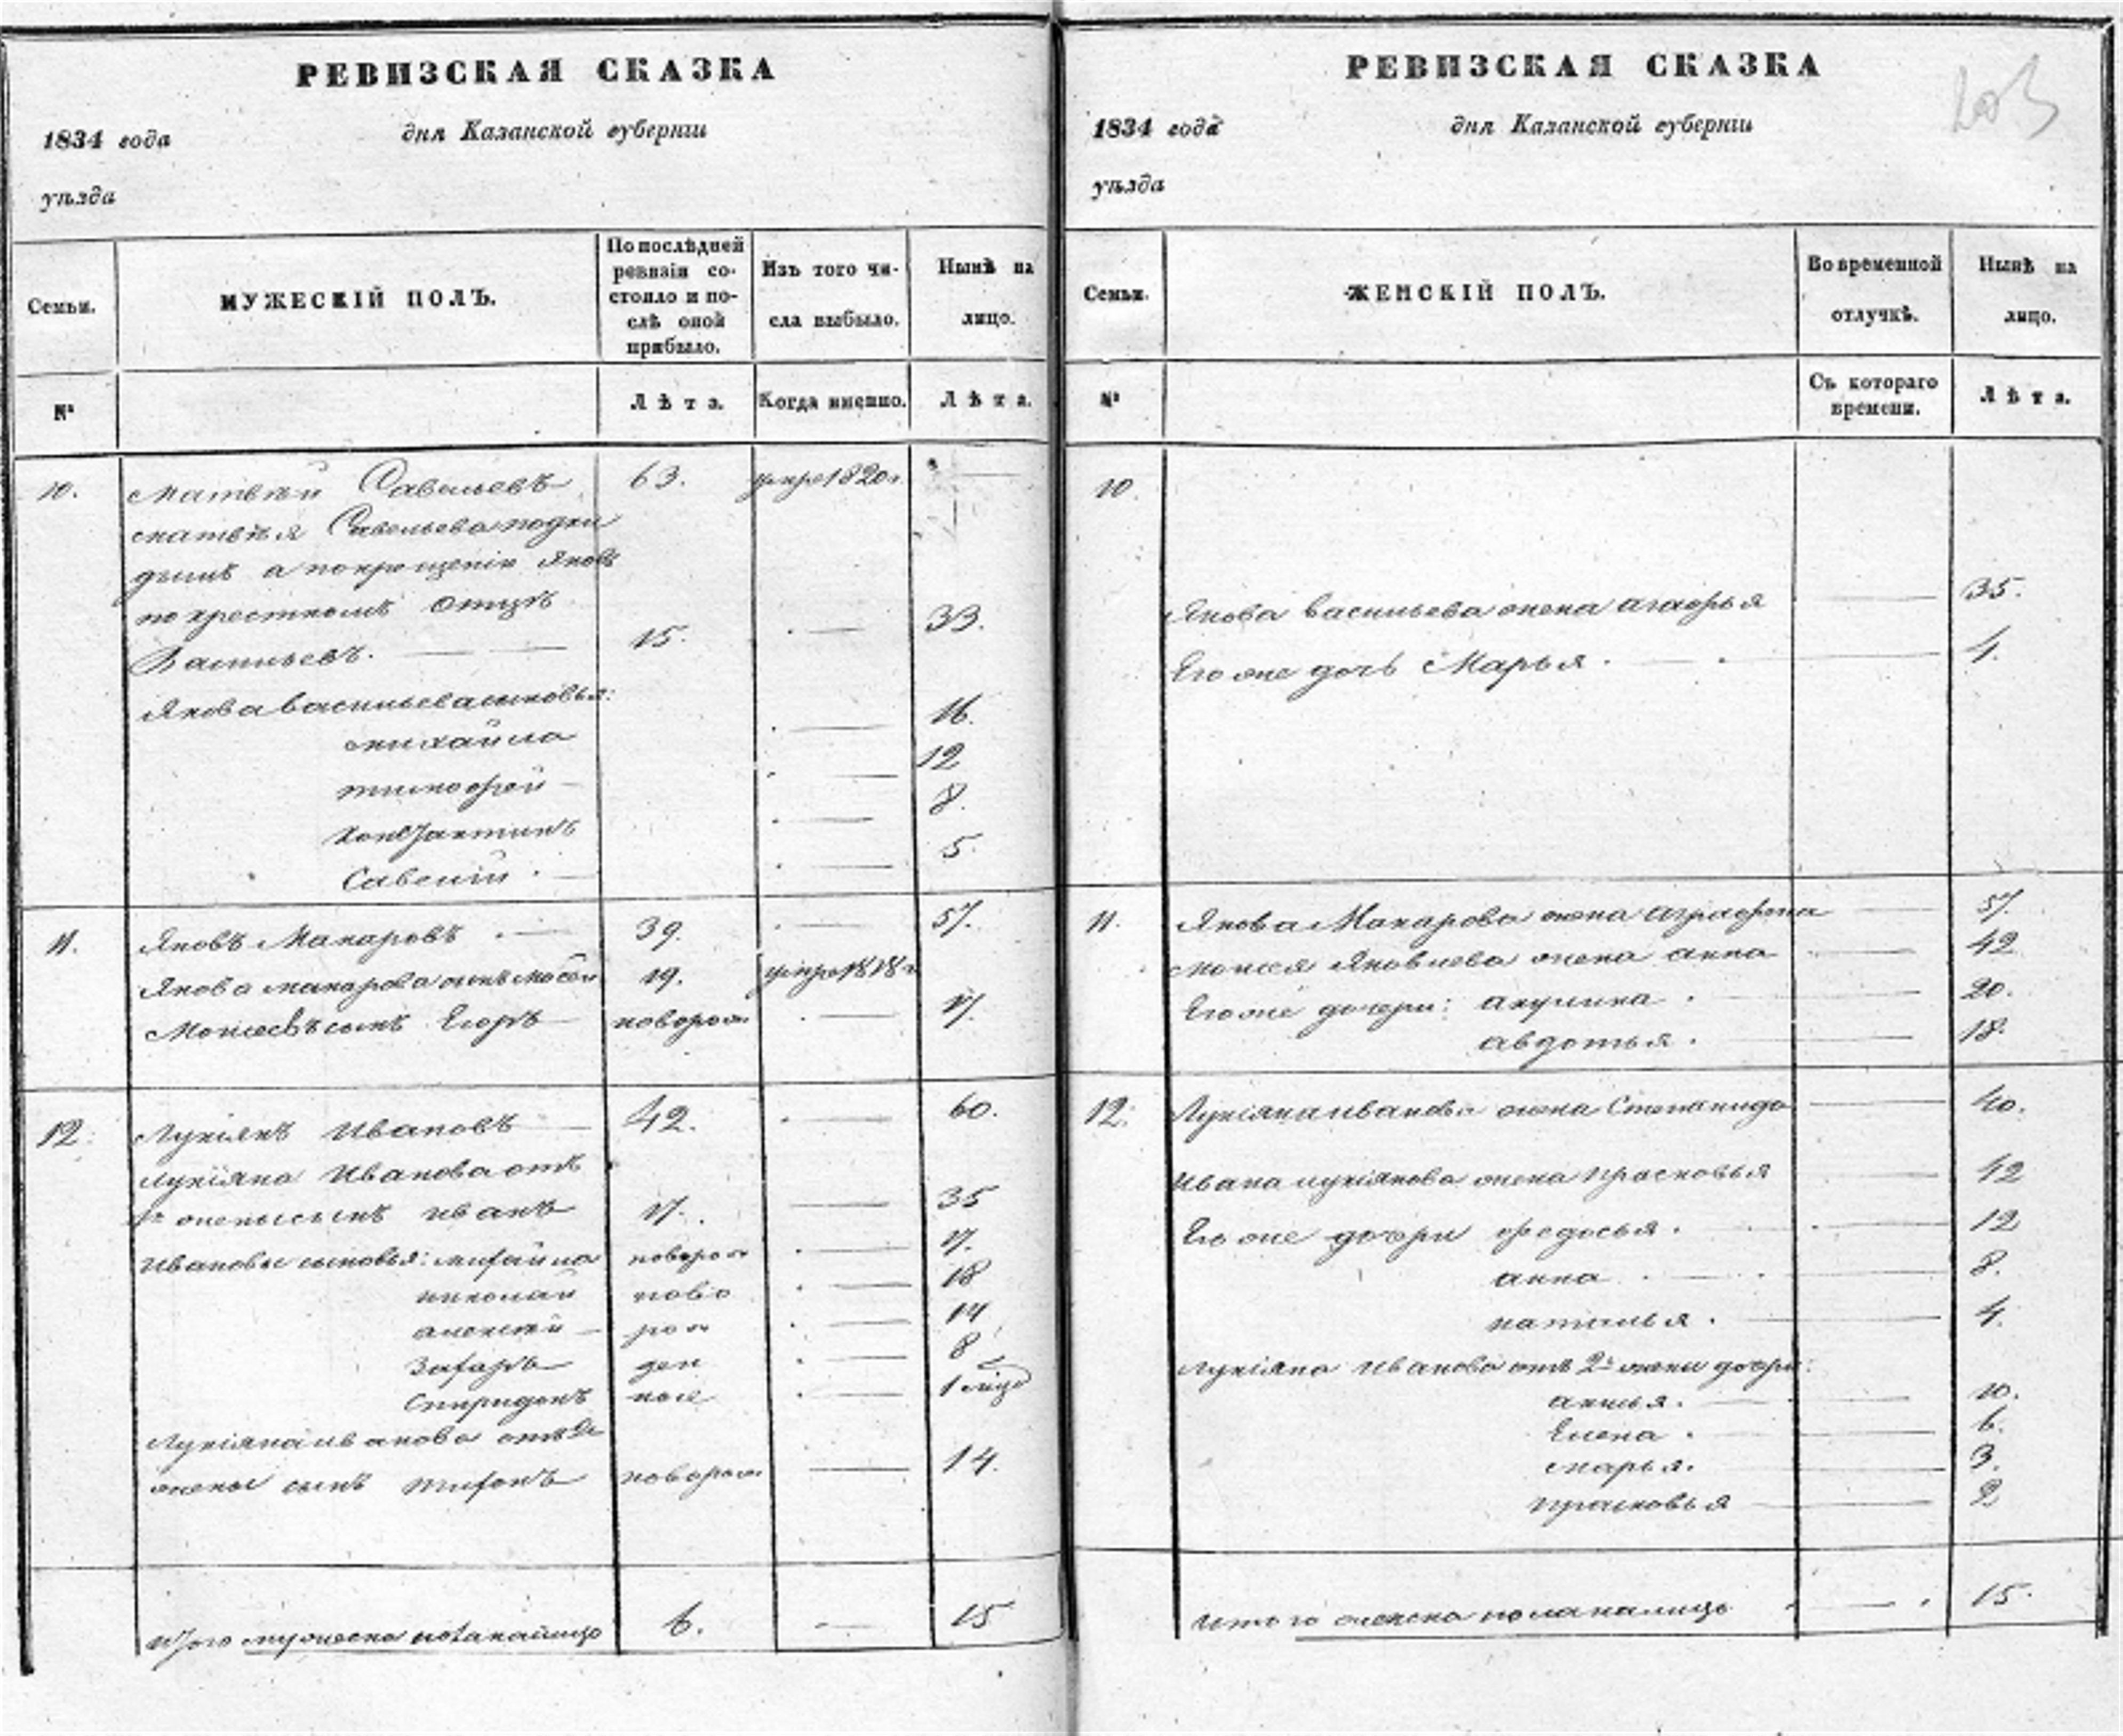 РЕВИЗСКАЯ СКАЗКА
1834 года дня Казанской губернiи
уѣзда
Семьи. МУЖЕСКIЙ ПОЛЪ. По послѣдней ревизiи состояло и послѣ оной прибыло. Изъ того числа выбыло. Нынѣ на лицо.
№ Лѣта. Когда именно. Лѣта.
10. Матвѣй Савельевъ 63. умре 1820 г. —
Матвѣя Савельева подки
дышъ а по крещенiи Яковъ
по крестномъ отцѣ 33.
Васильевъ. — 15. —
Якова Васильева сыновья: 16.
Михайла — 12
Тимофей — 8.
Констянтинъ — 5.
Савелiй —
11. Яковъ Макаровъ — 39. — 57.
Якова Макарова сынъ Мосей 19. умре 1818 г
Моисеевъ сынъ Егоръ новорож — 17.
12. Лукіянъ Ивановъ — 42. — 60.
Лукіяна Иванова отъ
1й жены сынъ Иванъ 17. — 35
Ивановы сыновья: Михайла новорож — 17.
Николай ново — 18
Алексѣй — рож — 14
Захаръ ден — 8
Спиридонъ ные — 1
Лукіяна Иванова отъ 2й
жены сынъ Тихонъ новорож — 14.
Итого мужеска пола налицо 6. — 15
РЕВИЗСКАЯ СКАЗКА
203
1834 года дня Казанской губернiи
уѣзда
Семьи. ЖЕНСКIЙ ПОЛЪ. Во временной отлучкѣ. Нынѣ на лицо.
№ Съ котораго времени. Лѣта.
10
Якова Васильева жена Агафья — 35.
Его же дочь Марья. — 4.
11. Якова Макарова жена Аграфена — 57.
Моисея Яковлева жена Анна — 42
Его же дочери: Акулина. — 20.
Авдотья. — 18.
12. Лукіяна Иванова жена Степанида — 40.
Ивана Лукіянова жена Прасковья — 42
Его же дочери Федосья. — 12
Анна. — 8.
Наталья. — 4.
Лукіяна Иванова отъ 2й жены дочери:
Анисья. — 10.
Елена. — 6.
Марья. — 3.
Прасковья — 2
Итого женска пола налицо — 15.